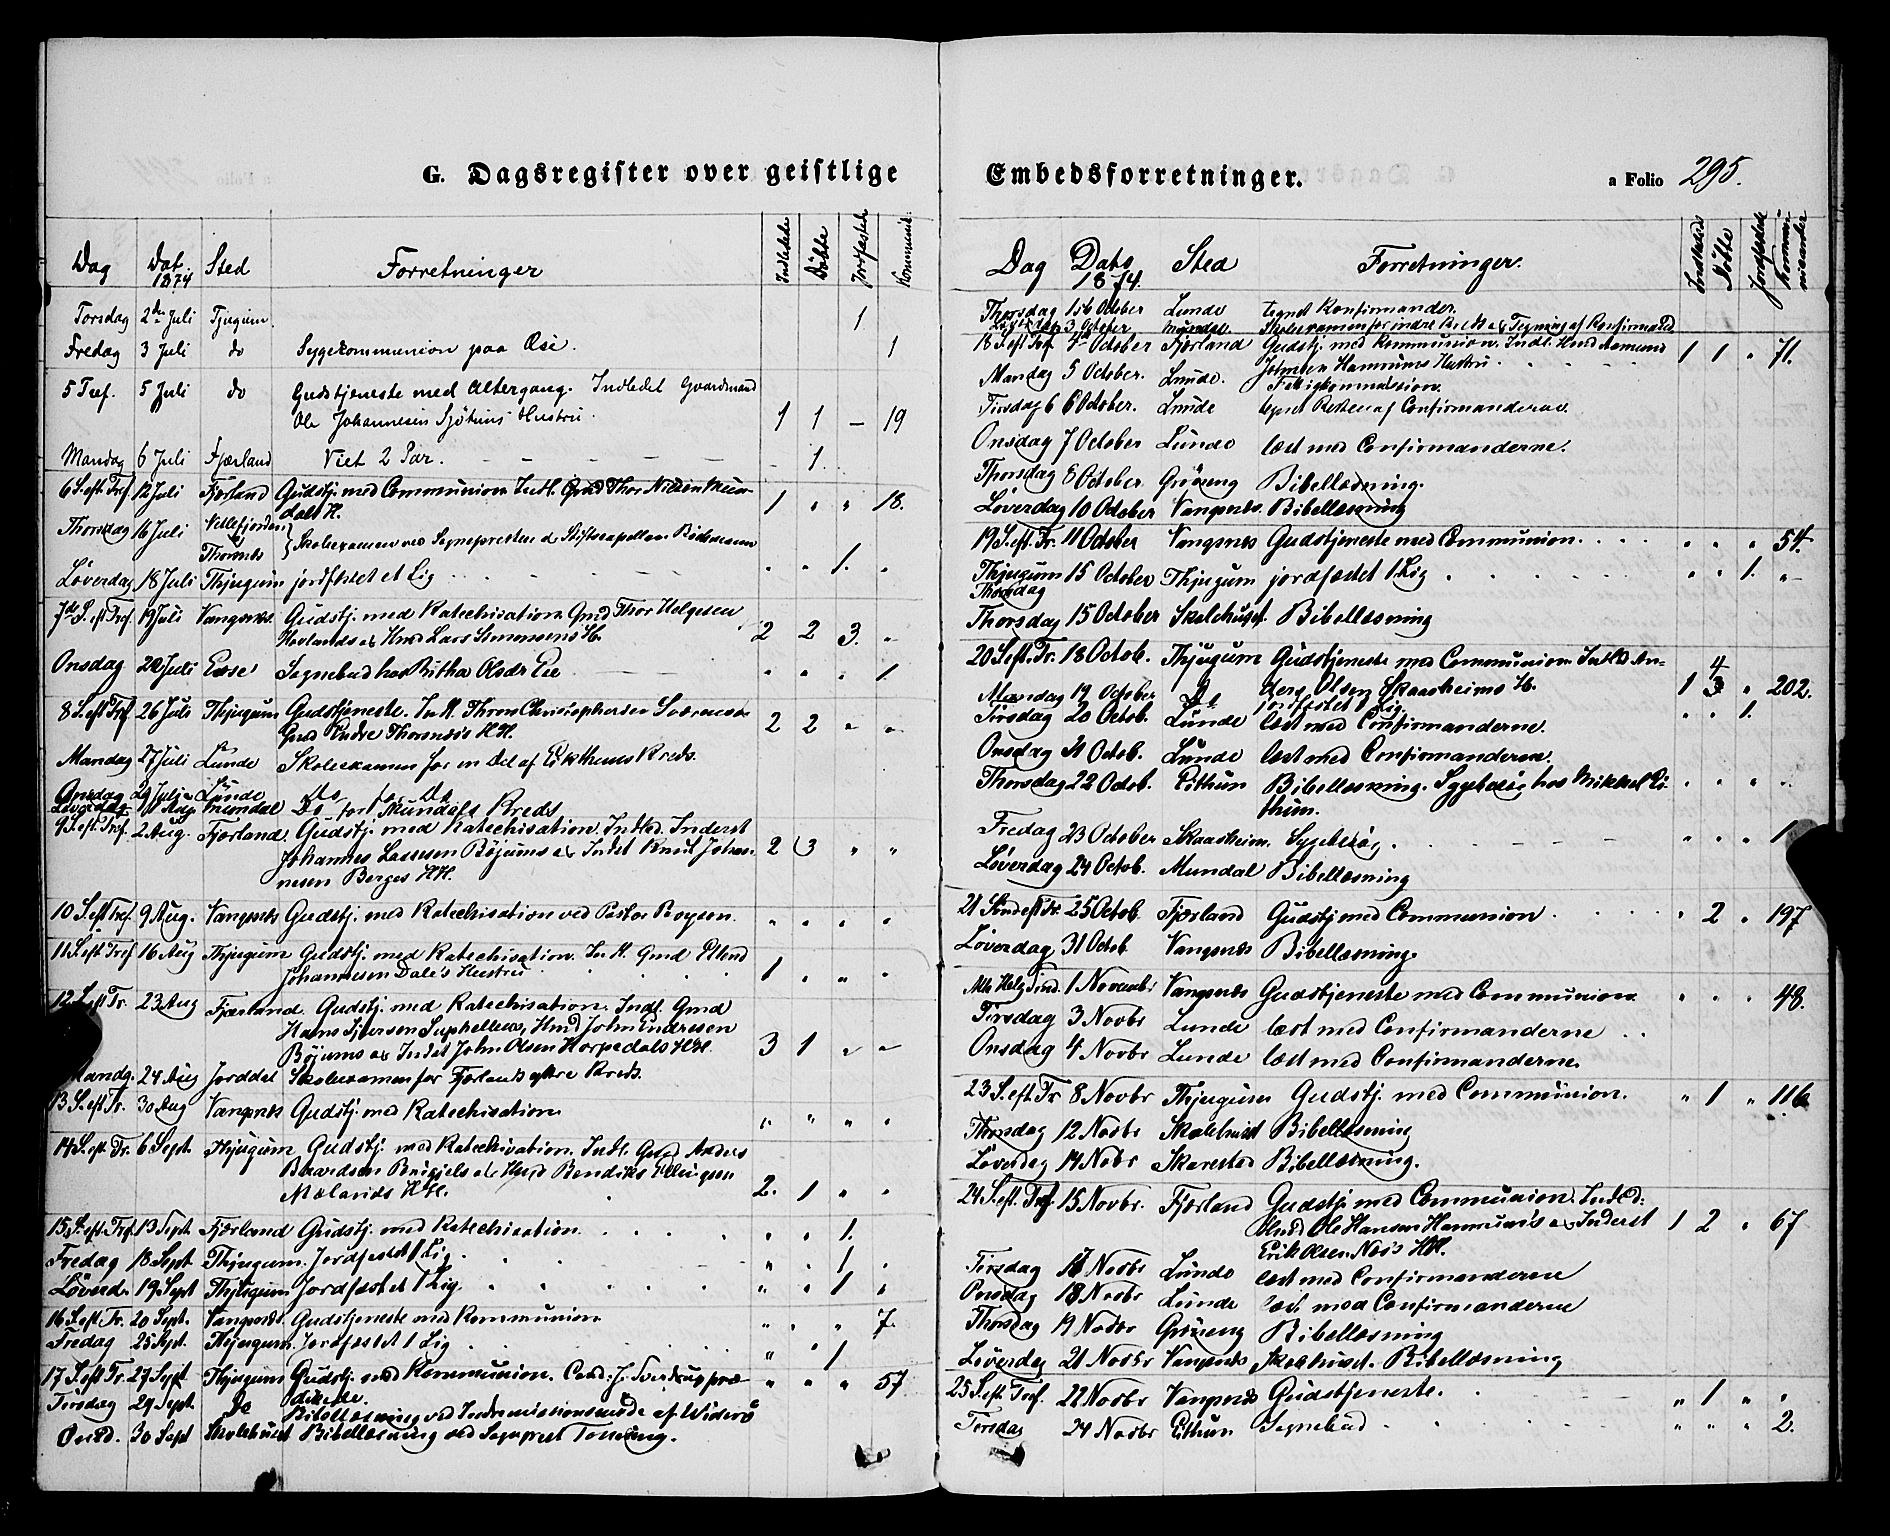 G. Dagsregister over geistlige
Dag Dat. 1874 Sted Forretninger Indledede Döbte Jordfæstede Kommunik.
Torsdag 2den Juli Tjugum. 1
Fredag 3 Juli do Sygekommunion paa Ese. 1
5 Tref. 5 Juli do Gudstjeneste med Altergang. Indledet Gaardmand
Ole Johannesen Sjötuns Hustru. 1 1 — 19
Mandag 6 Juli Fjærland Viet 2 Par. 1.
6 S. eft. Tref 12 Juli Fjærland Gudstj. med Communion Indl. Gmd Thor Nilsen Mun-
dals H. 1 " " 18.
Thorsdag 16 Juli Vetlefjorden &
Thorsnes Skoleexamen ved Sognepresten &
Løverdag 18 Juli Thjugum jordfæstet et Lig " " 1. "
7de S. eft Tref. 19 Juli Vangsnæs. Gudstj. med Katechisation Gmd Thor Helgesen
Hovlands & Hmd Lars Simonsens H. 2 2 3. "
Onsdag 22 Juli Esse Sognebud hos Britha Olsdr Ese " " " 1
8 S. eft Tref 26 Juli Thjugum Gudstjeneste. Indl. Christophersen
Gmd Endre Thorsnæs's HH. 2 2 " "
Mandag 27 Juli Lunde Skoleexamen for en Del af Kreds.
Onsdag 29 Juli Lunde Do for Do
Løverdag 1 Aug. Mundal Do for Mundals Kreds
9 S. eft. Tref. 2 Aug. Fjærland. Gudstj. med Katechisation. Indled. Inderst
Johannes Lassesen Bøjums & Indst Knut Johan-
nesen Berges HH. 2 3 " "
10 S. eft Tref. 9 Aug. Vangsnæs Gudstj. med Katechisation ved Pastor . " " " "
11 S. eft Tref 16 Aug Thjugum Gudstj. med Katechisation. Indl. Gmd Erlend
Johannesen Dale's Hustru 1 " " "
12 S. eft Tr. 23 Aug Fjærland. Gudstj. med Katechisation. Indl. Gmd
Hans Suphellens, Hmd John Endresen
Bøjums & Indst John Olsen Horpedals HH. 3 1 " "
Mandg. 24 Aug Jorddal Skoleexamen for Fjærlands ytre Kreds.
13 S. eft Tr. 30 Aug Vangsnæs Gudstj. med Katechisation " " " "
14 S. eft. Tr. 6 Sept. Thjugum Gudstj. med Katechisation. Indl. Gmd Anders
Baardsen & Hmd Bendiks Ellingsen
Mælands HH. 2. 1 " "
15 S. eft. Tref. 13 Sept. Fjærland Gudstj. med Katechisation. " " 1.
Fredag 18 Sept Thjugum. Jordfæstet 1 Lig. " " 1 "
Löverd. 19 Sept Thjugum Jordfæstet 1 Lig " " 1 "
16 S. eft Tr. 20 Sept. Vangsnæs. Gudstjeneste med Kommunion " " " 7.
Fredag 25 Sept. Thjugum. Jordfæstet 1 Lig " " 1
17 S. eft Tr. 27 Sept Thjugum Gudstj. med Kommunion. Cand. J. Sverdrup præ- " " " 57
dikede.
Tirsdag 29 Sept. Do Bibellæsning ved Indremissionsmöde af
Onsd. 30 Sept Skolehuset Bibellæsning ved Sognprest
Embedsforretninger. a Folio 295.
Dag Dato 1874. Sted Forretninger. Indledede Döbte Jordfæstede Kommunikanter
Thorsdag 1ste October Lunde tegnet Konfirmander.
Løverdag 3 October Mundal. Skoleexamen for indre Kreds & Tegning af Konfirmand
18 S. eft Tref. 4de October Fjærland Gudstj. med Kommunion. Indl. Hmd Aamund
Johnsen Hamrums Hustru 1 1 " 71.
Mandag 5 October. Lunde. Fattigkommission.
Tirsdag 6 October. Lunde tegnet Resten af Confirmanderne.
Onsdag 7 October Lunde læst med Confirmanderne.
Thorsdag 8 October Grøneng Bibellæsning.
Løverdag 10 October Vangsnæs. Bibellæsning
19 S. eft. Tr. 11 October Vangsnæs Gudstjeneste med Communion. " " " 54.
Thjugum 15 October Thjugum jordfæstet 1 Lig " " 1. "
Thorsdag
Thorsdag 15 October Skolehuset. Bibellæsning
20 S. eft. Tr. 18 Octob. Thjugum Gudstjeneste med Communion Indld An-
ders Olsen Skaasheims H. 1 4 3 " 202.
Mandag 19 October Do jordfæstet 1 Lig. " " 1.
Tirsdag 20 Octob. Lunde læst med Confirmanderne.
Onsdag 21 Octob. Lunde læst med Confirmanderne.
Thorsdag 22 Octob. Eithun Bibellæsning. Sygebesøg hos Mikkel Ei-
thun. " " " "
Fredag 23 October Skaasheim. Sygebesøg. " " " 1
Løverdag 24 Octob. Mundal Bibellæsning
21 Sond eft Tr. 25 Octob Fjærland Gudstj med Communion " 2 " 197
Løverdag 31 Octob. Vangsnæs Bibellæsning.
Alle Helg. Sond. 1 Novembr Vangsnæs Gudstjeneste med Communion " " " 48.
Tirsdag 3 Novbr Lunde læst med Confirmanderne
Onsdag 4 Novbr Lunde læst med Confirmanderne.
23 S. eft. Tr 8 Novbr Thjugum Gudstj. med Communion. " 1 " 116
Thorsdag 12 Novbr Skolehuset Bibellæsning
Løverdag 14 Novbr Skarestad Bibellæsning.
24 S. eft. Tref. 15 Novbr. Fjærland Gudstj med Communion. Indld:
Hmd Ole Hansen Hamrums's & Inderst 1 2 " 67
Erik Olsen Næs's HH.
Tirsdag 17 Novbr Lunde læst med Confirmanderne
Onsdag 18 Novbr Lunde læst med Confirmanderne
Thorsdag 19 Novbr Grøneng Bibellæsning
Løverdag 21 Novbr Vangsnæs Skolehuset. Bibellæsning
25 S. eft. Tref. 22 Novbr Vangsnæs Gudstjeneste. " 1 " "
Tirsdag 24 Novbr Eithun Sognebud " " " 2.